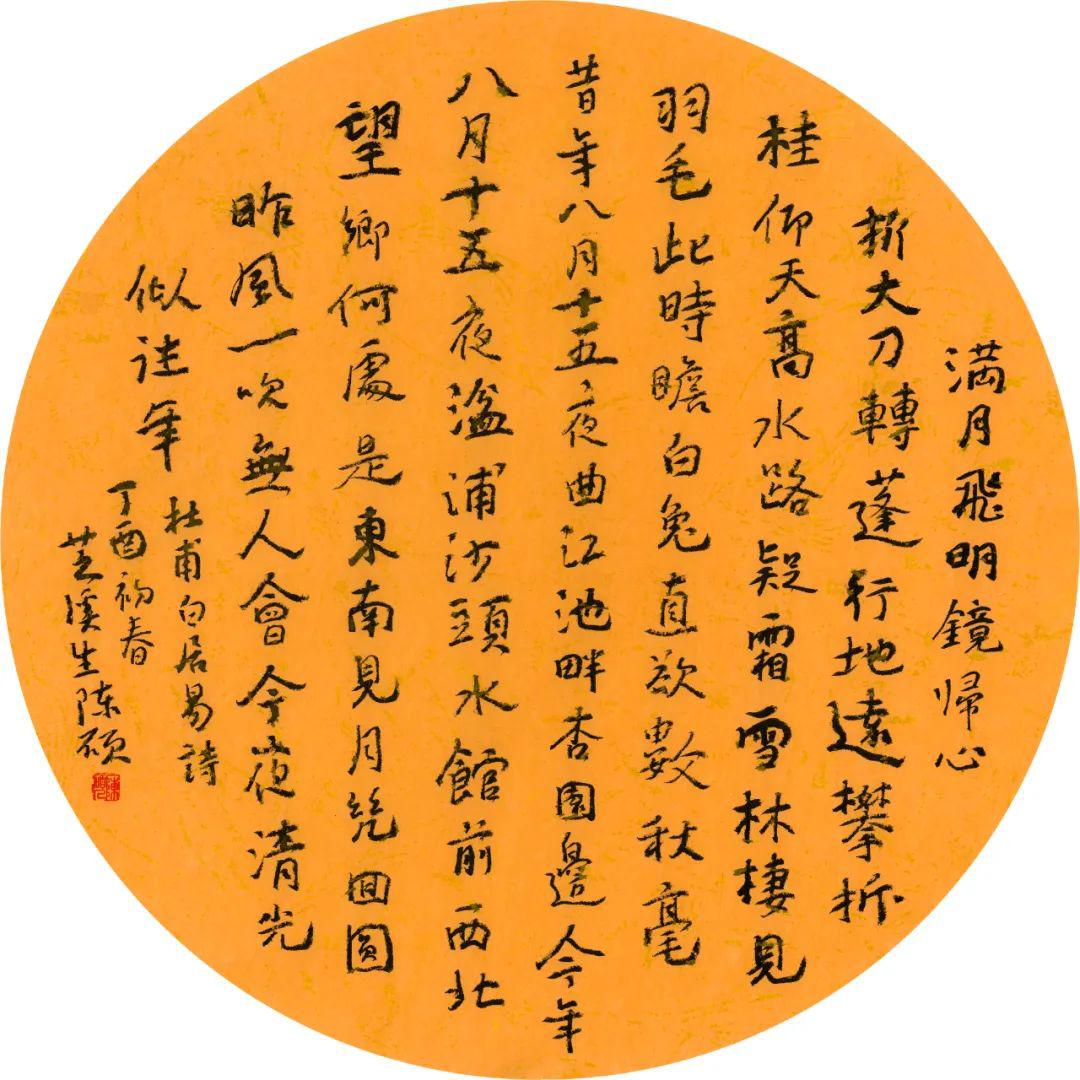 満月飛明鏡帰心
折大刀轉蓬行地遠攀折
桂仰天高水路疑霜雪林棲見
羽毛此時瞻白兔直欲數秋毫
昔年八月十五夜曲江池畔杏園邊今年
八月十五夜湓浦沙頭水館前西北
望鄉何處是東南見月幾回圓
昨風一吹無人會今夜清光
似往年
杜甫白居易詩
丁酉初春
芝溪生陈硕